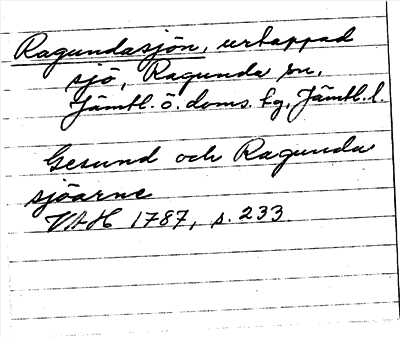 Ragundasjön, urtappad
sjö, Ragunda sn,
Jämtl. ö. doms. fg, Jämtl. l.
Gesund och Ragunda
sjöarne
VAH 1787, s. 233